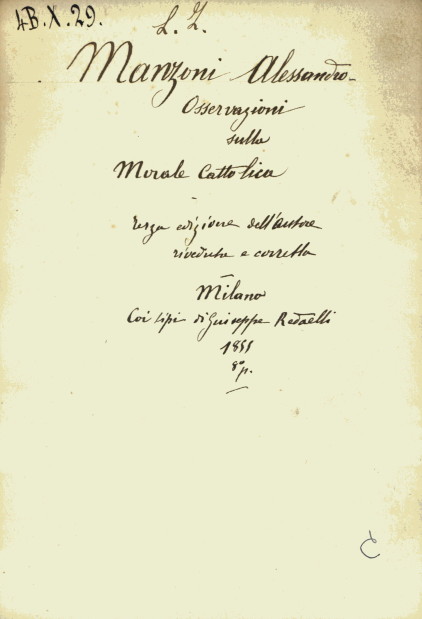 4B.X.29.
L. Z.
Manzoni Alessandro-
Osservazioni
sulla
Morale Cattolica
-
Terza edizione dell'Autore
riveduta e corretta
Milano
Coi tipi di Giuseppe Redaelli
1855
8º p.
C